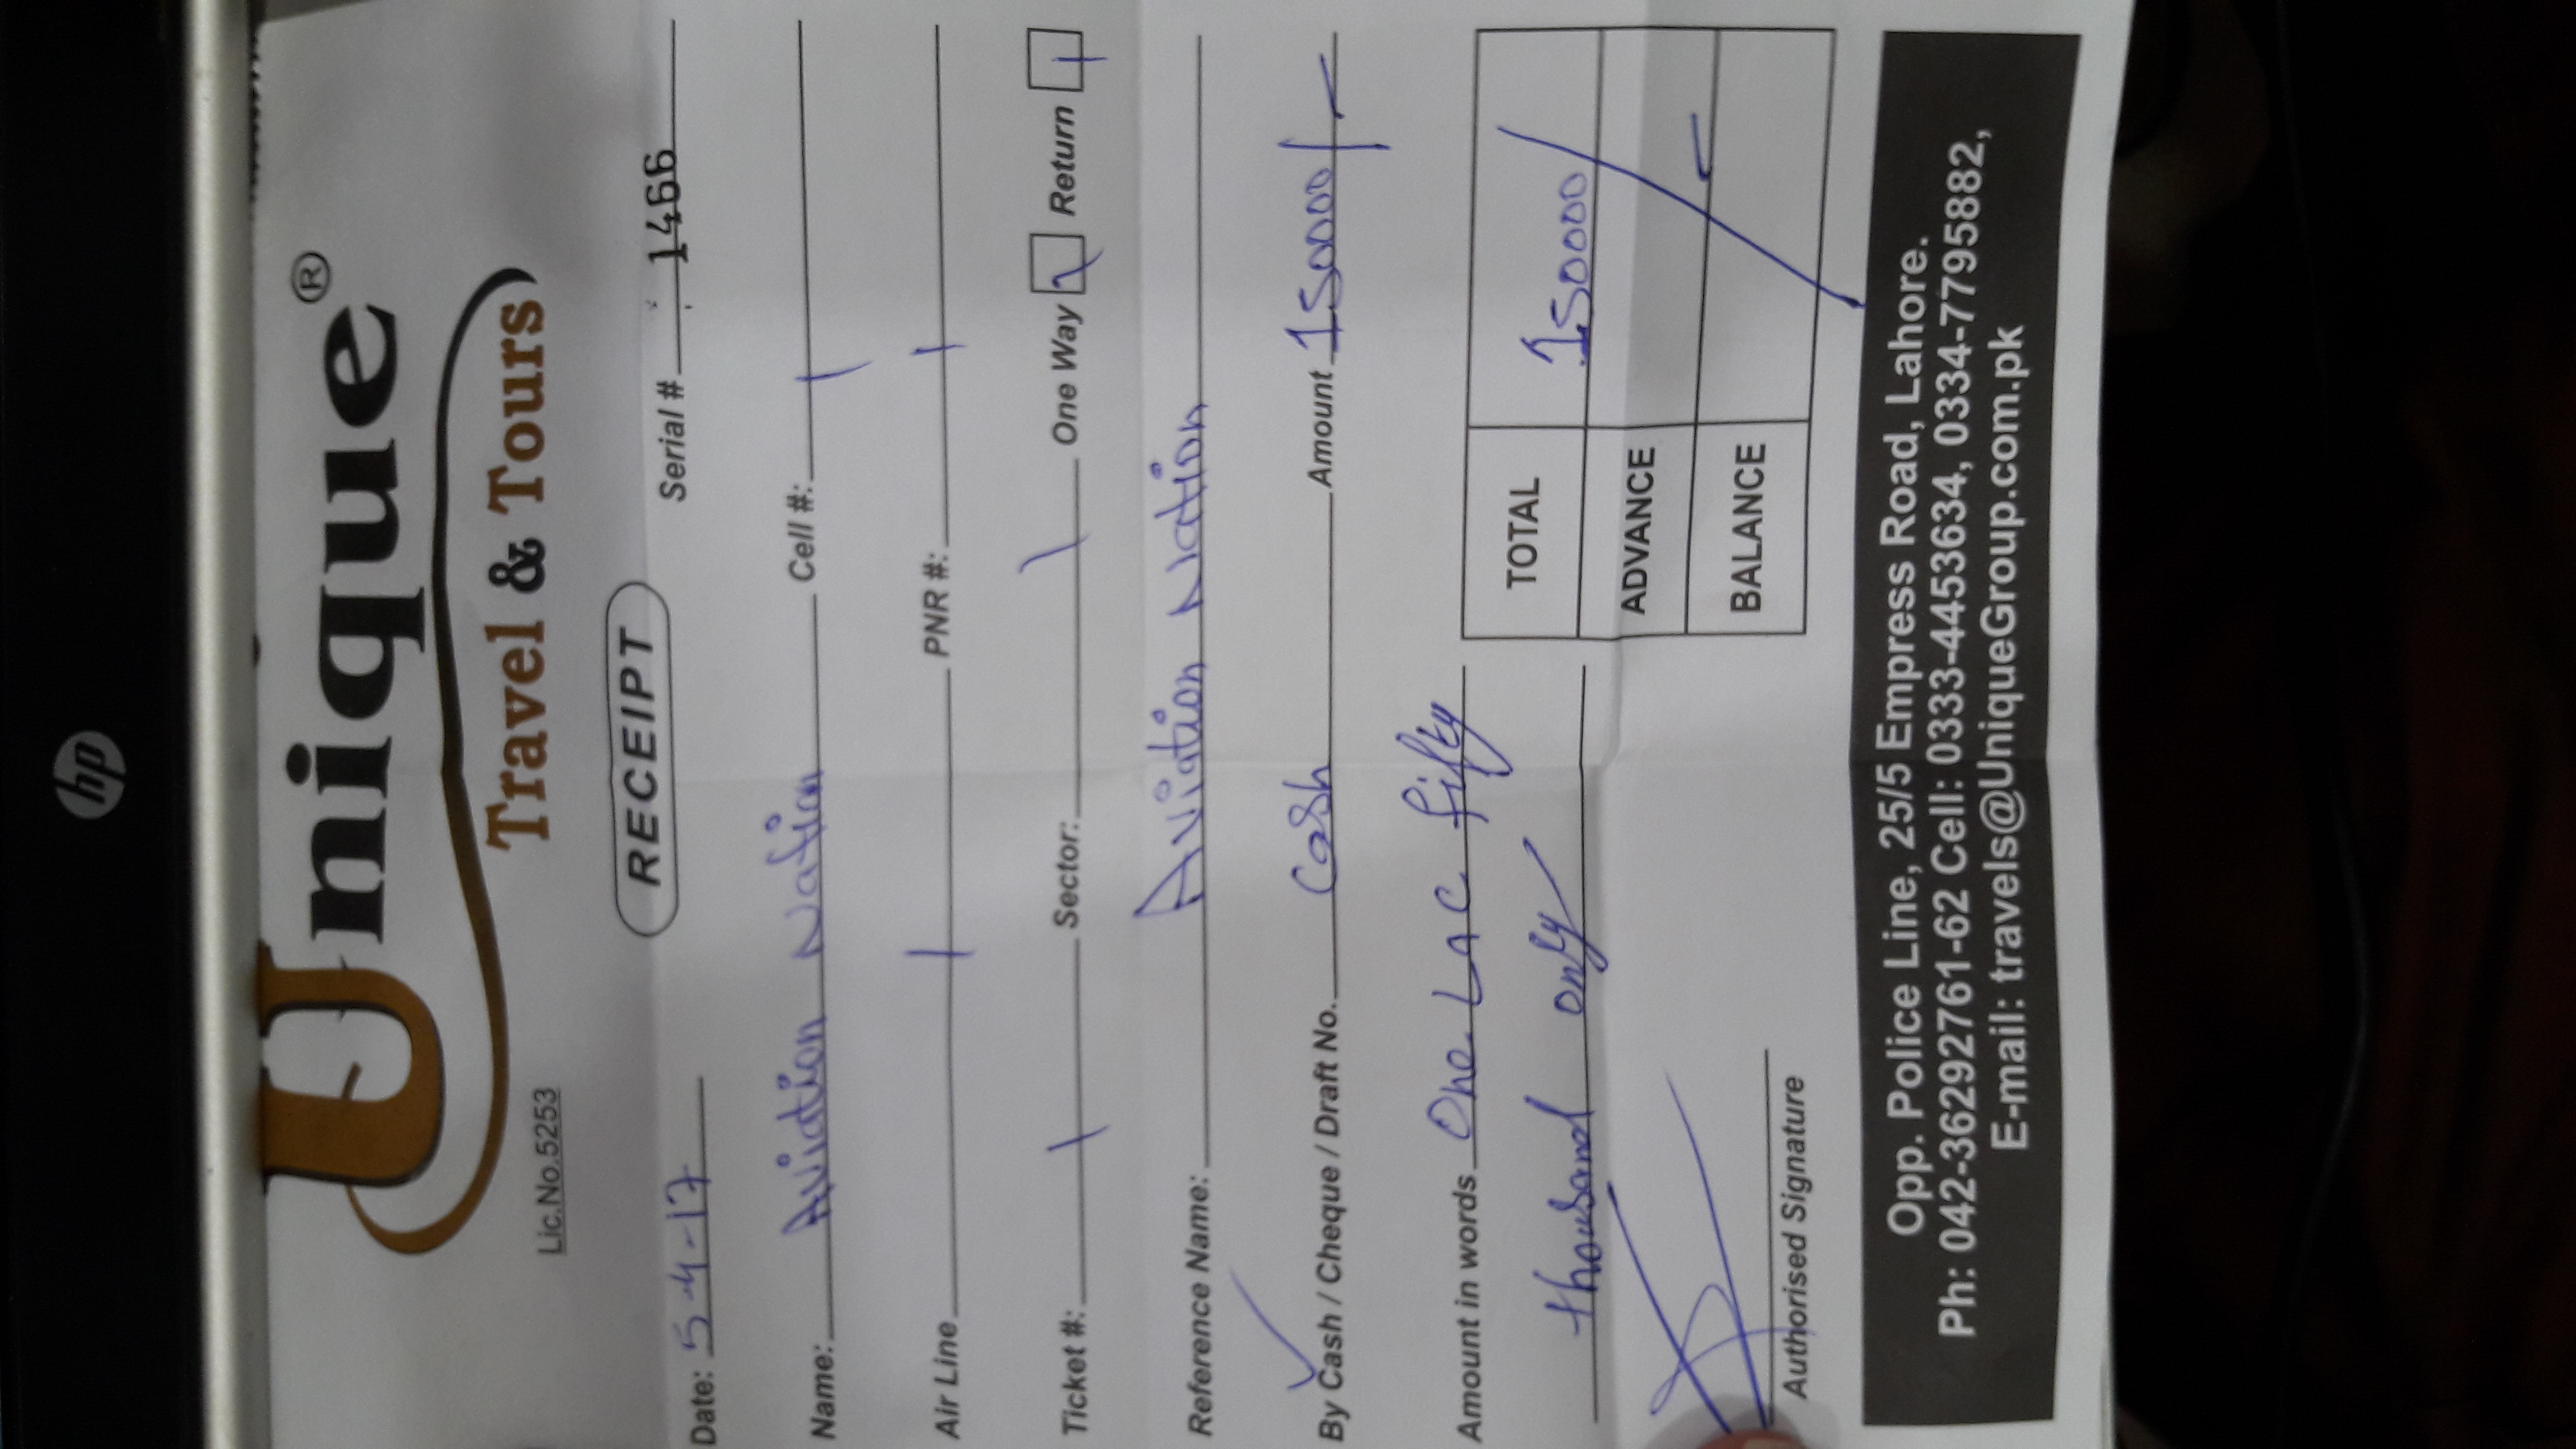 Unique®
Travel & Tours
Lic.No.5253
RECEIPT
Date: 5-4-17 Serial # 1466
Name: Aviation Nation Cell #:
Air Line PNR #:
Ticket #: Sector: One Way Return
Reference Name: Aviation Nation
By Cash / Cheque / Draft No. Cash Amount 150000/-
Amount in words One Lac fifty
thousand only
TOTAL 150000/-
ADVANCE
BALANCE
Authorised Signature
Opp. Police Line, 25/5 Empress Road, Lahore.
Ph: 042-36292761-62 Cell: 0333-4453634, 0334-7795882,
E-mail: travels@UniqueGroup.com.pk
hp